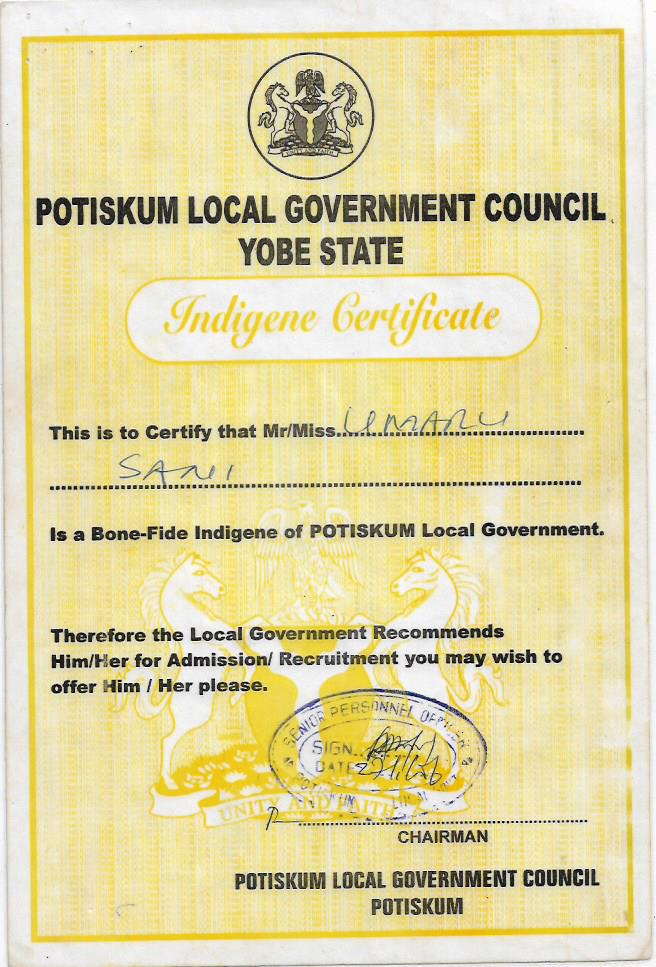 UNITY AND FAITH
POTISKUM LOCAL GOVERNMENT COUNCIL
YOBE STATE
Indigene Certificate
This is to Certify that Mr/Miss UMARU
SANI
Is a Bone-Fide Indigene of POTISKUM Local Government.
Therefore the Local Government Recommends
Him/Her for Admission/ Recruitment you may wish to
offer Him / Her please.
SENIOR PERSONNEL OFFICER
SIGN
DATE
POTISKUM LOCAL
UNITY AND FAITH
CHAIRMAN
POTISKUM LOCAL GOVERNMENT COUNCIL
POTISKUM